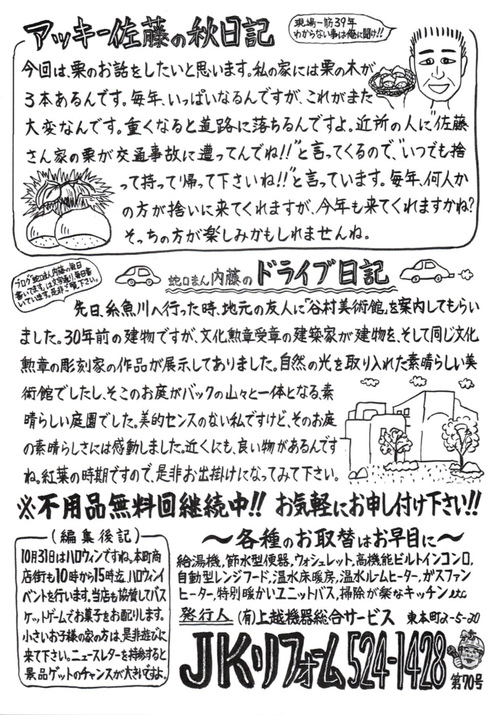 アッキー佐藤の秋日記
現場一筋39年
わからない事は俺に聞け!!
今回は、栗のお話をしたいと思います。私の家には栗の木が
3本あるんです。毎年、いっぱいなるんですが、これがまた
大変なんです。重くなると道路に落ちるんですよ。近所の人に“佐藤
さん家の栗が交通事故に遭ってんでね!!”と言ってくるので、“いつでも拾
って持って帰って下さいね!!”と言っています。毎年、何人か
の方が拾いに来てくれますが、今年も来てくれますかね?
そっちの方が楽しみかもしれませんね。
蛇口まん内藤のドライブ日記
先日、糸魚川へ行った時、地元の友人に「谷村美術館」を案内してもらい
ました。30年前の建物ですが、文化勲章受章の建築家が建物を、そして同じ文化
勲章の彫刻家の作品が展示してありました。自然の光を取り入れた素晴らしい美
術館でしたし、そこのお庭がバックの山々と一体となる、素
晴らしい庭園でした。美的センスのない私ですけど、そのお庭
の素晴らしさには感動しました。近くにも、良い物があるんです
ね。紅葉の時期ですので、是非お出掛けになってみて下さい。
※不用品無料回継続中!! お気軽にお申し付け下さい!!
(編集後記)
10月31日はハロウィンですね。本町商
店街も10時から15時迄 ハロウィンイ
ベントを行います。当店も協賛してバス
ケットゲームでお菓子をお配りします。
小さいお子様の家の方は、是非遊びに
来て下さい。ニュースレターを持参すると
景品ゲットのチャンスが大きいですよ。
〜各種のお取替はお早目に〜
給湯機,節水型便器,ウォシュレット,高機能ビルトインコンロ,
自動型レンジフード,温水床暖房,温水ルームヒーター,ガスファン
ヒーター,特別暖かいユニットバス,掃除が楽なキッチンetc
発行人 (有)上越機器総合サービス 東本町2-5-30
JKリフォーム 524-1428 第70号